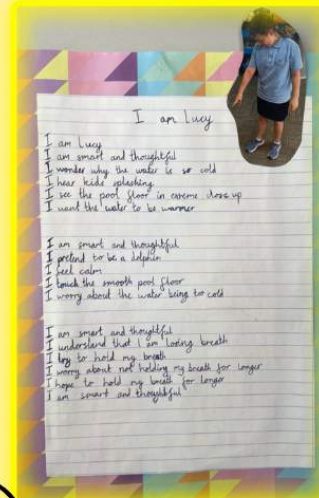 I am Lucy
I am Lucy
I am smart and thoughtful
I wonder why the water is so cold
I hear kids splashing
I see the pool floor in extreme close up
I want the water to be warmer
I am smart and thoughtful
I pretend to be a dolphin
I feel calm
I touch the smooth pool floor
I worry about the water being too cold
I am smart and thoughtful
I understand that I am losing breath
I try to hold my breath
I worry about not holding my breath for longer
I hope to hold my breath for longer
I am smart and thoughtful